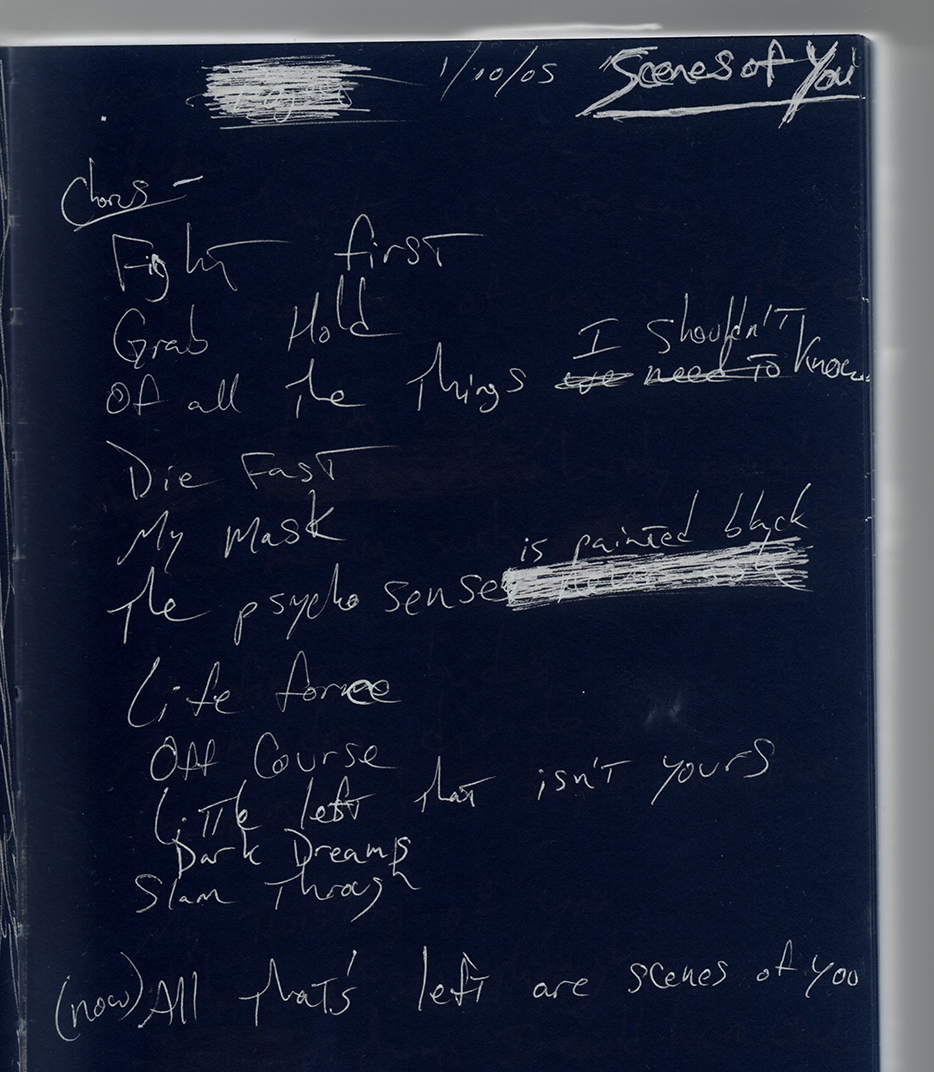 1/10/05 "Scenes of You"
Chorus -
Fight first
Grab Hold
I shouldn't
Of all the things we need to know
Die Fast
My mask
is painted black
The psycho sense
Life force
Off Course
Little left that isn't yours
Dark Dreams
Slam Through
(now) All that's left are scenes of you